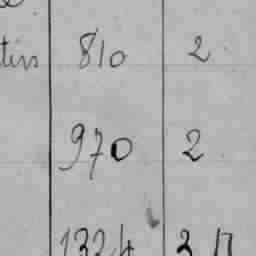 tins 810 2
970 2
1324 3